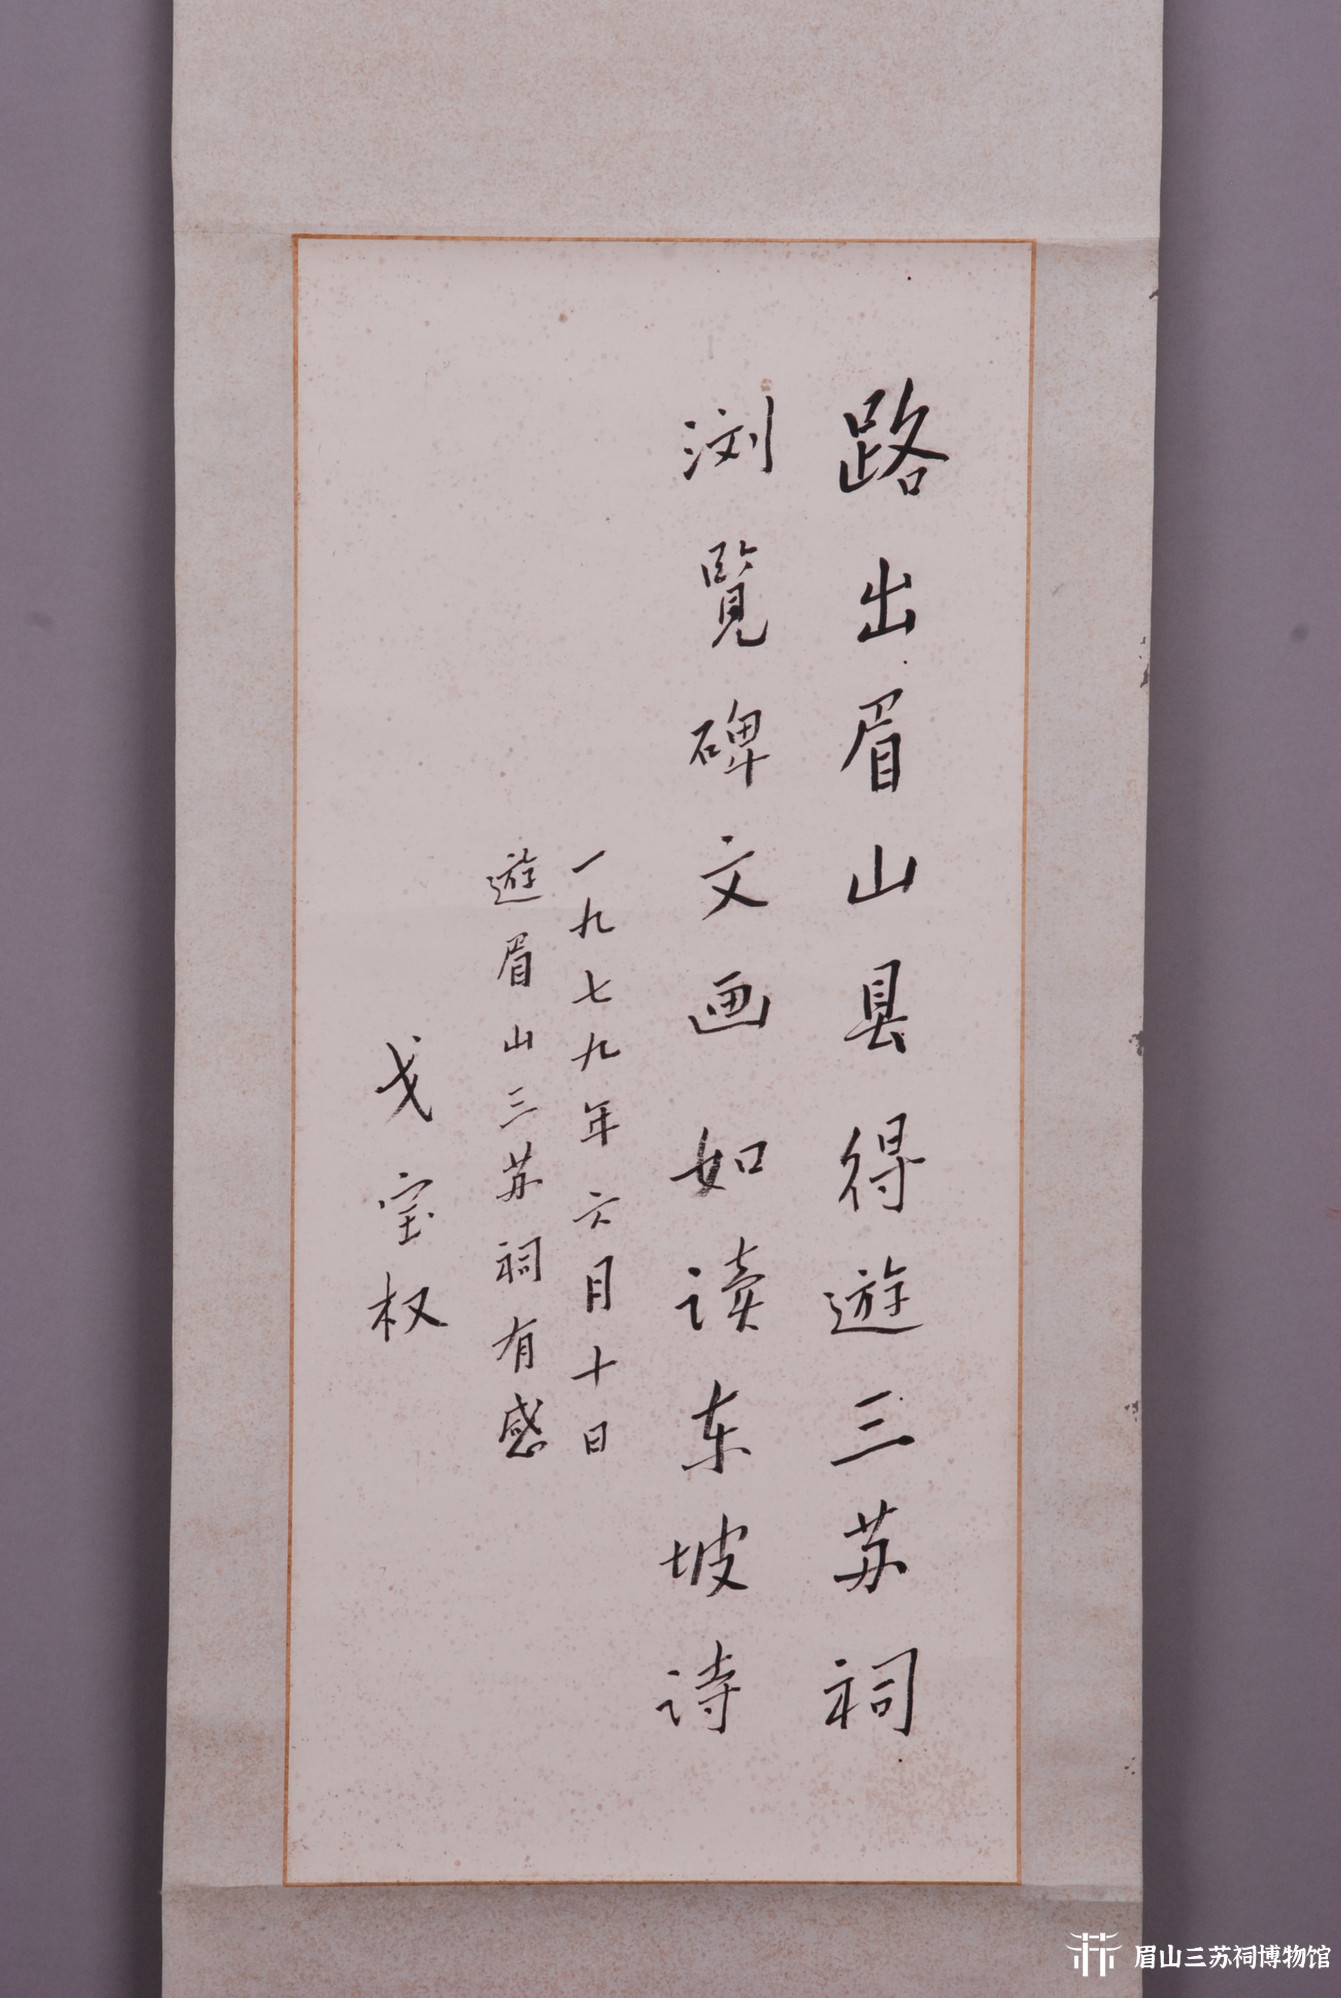 路出眉山县得遊三苏祠
浏覽碑文画如读东坡诗
一九七九年六月十日
遊眉山三苏祠有感
戈宝权
眉山三苏祠博物馆